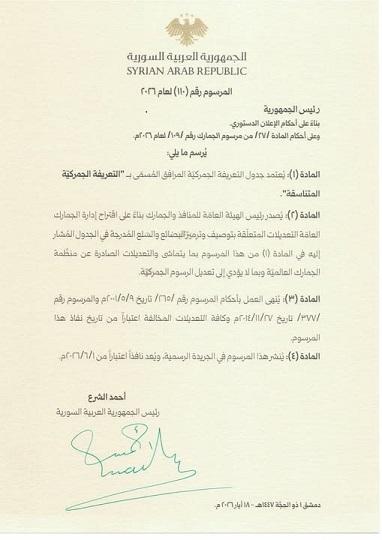 الجمهورية العربية السورية
SYRIAN ARAB REPUBLIC
المرسوم رقم (١١٠) لعام ٢٠٢٦
رئيس الجمهورية
بناءً على أحكام الإعلان الدستوري.
وعلى أحكام المادة /٢٧/ من مرسوم الجمارك رقم /١٠٩/ لعام ٢٠٢٦م.
يُرسم ما يلي:
المادة (١): يُعتمد جدول التعريفة الجمركيّة المرافق المُسمّى بـ "التعريفة الجمركيّة
المتناسقة".
المادة (٢): يُصدر رئيس الهيئة العامّة للمنافذ والجمارك بناءً على اقتراح إدارة الجمارك
العامّة التعديلات المتعلّقة بتوصيف وترميز البضائع والسّلع المُدرجة في الجدول المُشار
إليه في المادة (١) من هذا المرسوم بما يتماشى والتعديلات الصادرة عن منظّمة
الجمارك العالميّة وبما لا يؤدي إلى تعديل الرسوم الجمركيّة.
المادة (٣): يُنهى العمل بأحكام المرسوم رقم /٢٦٥/ تاريخ ٢٠٠١/٥/٩م والمرسوم رقم
/٣٧٧/ تاريخ ٢٠١٤/١١/٢٧م وكافة التعديلات المخالفة اعتباراً من تاريخ نفاذ هذا
المرسوم.
المادة (٤): يُنشر هذا المرسوم في الجريدة الرسمية، ويُعد نافذاً اعتباراً من ٢٠٢٦/٦/١م.
أحمد الشرع
رئيس الجمهورية العربية السورية
دمشق ١ ذو الحجّة ١٤٤٧هـ - ١٨ أيار ٢٠٢٦ م.